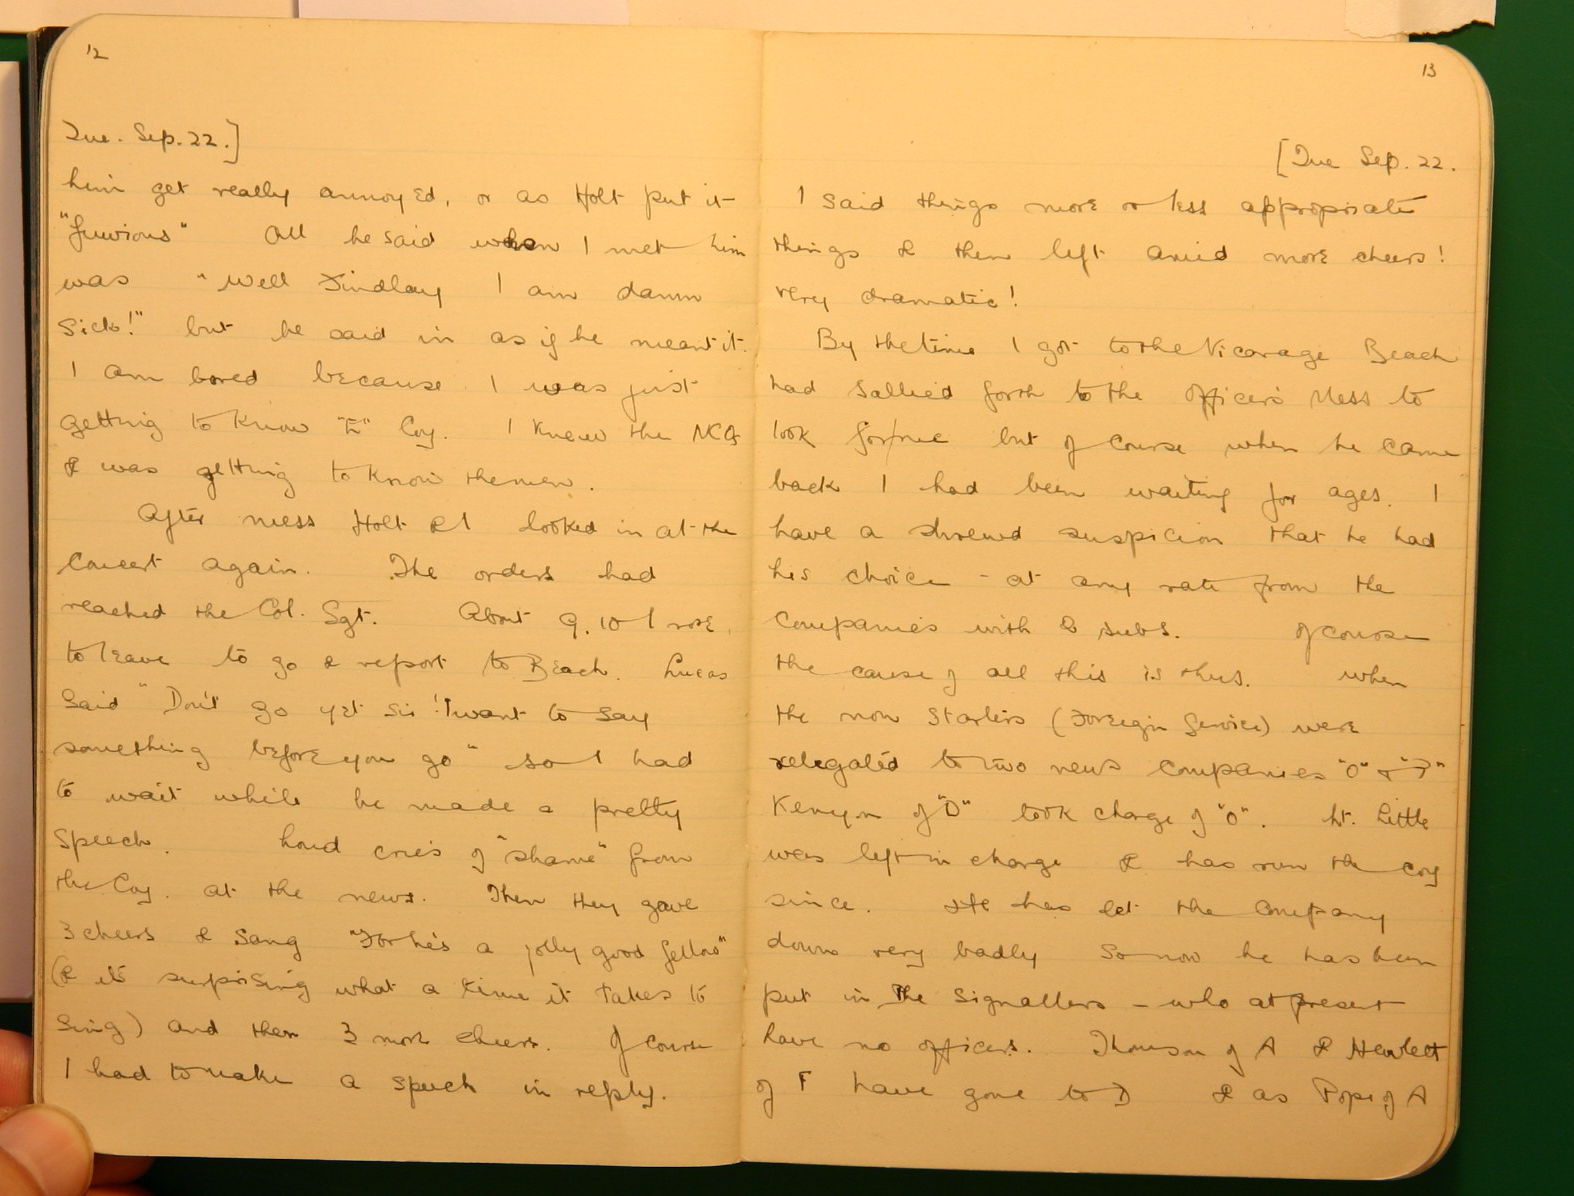 12
Tue. Sep. 22.]
him get really annoyed, or as Holt put it
"fuvious" All he said when I met him
was "Well Findlay I am damn
sick!" but he said in as if he meant it.
I am bored because I was just
getting to know "E" Coy. I knew the NCOs
& was getting to know the men.
After mess Holt & I looked in at the
concert again. The orders had
reached the Col. Sgt. About 9.10 I rose
to leave to go & report to Beach. Lucas
said "Don't go yet sir! I want to say
something before you go" so I had
to wait while he made a pretty
speech. Loud cries of "shame" from
the Coy. at the news. Then they gave
3 cheers & sang "For he's a jolly good fellow"
(& it's surprising what a time it takes to
sing) and then 3 more cheers. Of course
I had to make a speech in reply.
13
[Tue Sep. 22.
I said things more or less appropriate
things & then left amid more cheers!
very dramatic!
By the time I got to the Vicarage Beach
had sallied forth to the Officers Mess to
look for me but of course when he came
back I had been waiting for ages. I
have a shrewd suspicion that he had
his choice - at any rate from the
Companies with 3 subs. Of course
the cause of all this is thus. When
the non starters (Foreign Service) were
relegated to two news companies "O" & "P"
Kenyon of "D" took charge of "O". Lt. Little
was left in charge & has run the coy
since. He has let the company
down very badly so now he has been
put in The Signallers - who at present
have no officers. Thomson of A & Hewlett
of F have gone to D & as Pope of A